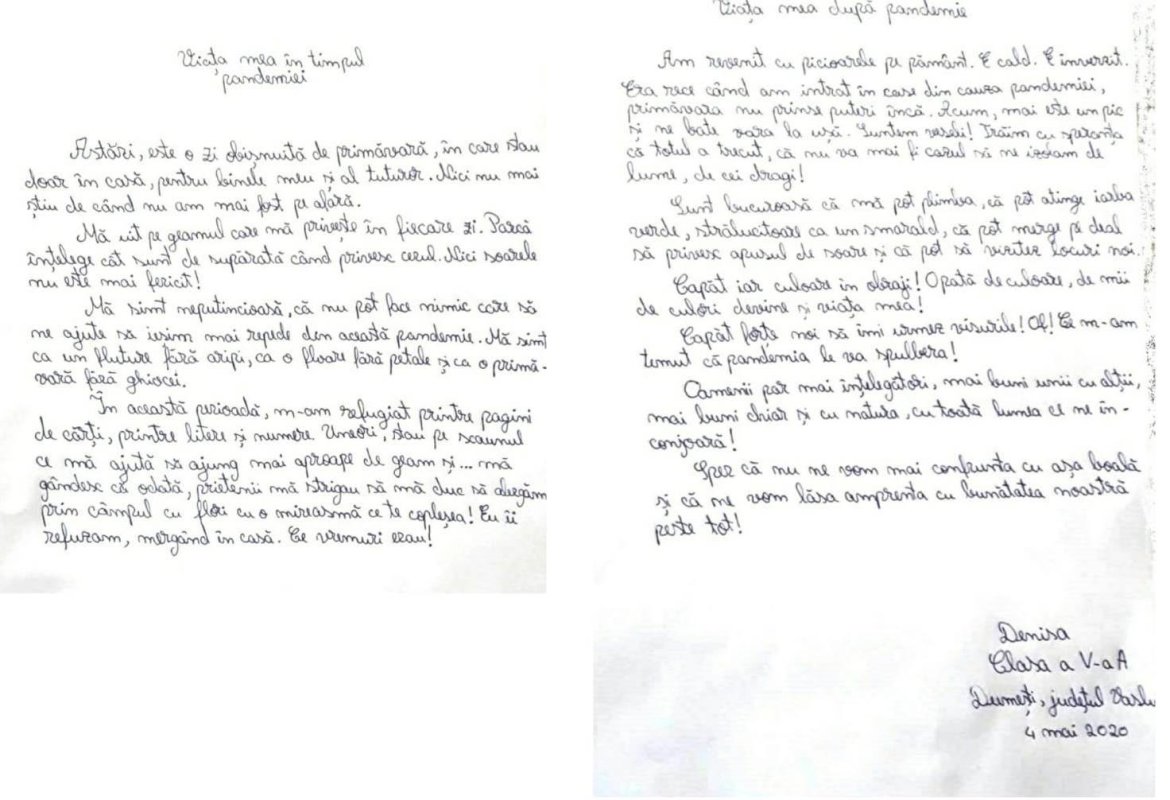 Viața mea în timpul
pandemiei
Astări, este o zi obișnuită de primăvară, în care stau
doar în casă, pentru binele meu și al tuturor. Nici nu mai
știu de când nu am mai fost pe afară.
Mă uit pe geamul care mă privește în fiecare zi. Parcă
înțelege cât sunt de supărată când privesc cerul. Nici soarele
nu este mai fericit!
Mă simt neputincioasă, că nu pot face nimic care să
ne ajute să ieșim mai repede din această pandemie. Mă simt
ca un fluture fără aripi, ca o floare fără petale și ca o primă-
vară fără ghiocei.
În această perioadă, m-am refugiat printre pagini
de cărți, printre litere și numere. Uneori, stau pe scaunul
ce mă ajută să ajung mai aproape de geam și... mă
gândesc că odată, prietenii mă strigau să mă duc să alergăm
prin câmpul cu flori cu o mireasmă ce te copleșea! Eu îi
refuzam, mergând în casă. Ce vremuri erau!
Viața mea după pandemie
Am revenit cu picioarele pe pământ. E cald. E înverzit.
Era rece când am intrat în case din cauza pandemiei,
primăvara nu prinse puteri încă. Acum, mai este un pic
și ne bate vara la ușă. Suntem veseli! Trăim cu speranța
că totul a trecut, că nu va mai fi cazul să ne izolam de
lume, de cei dragi!
Sunt bucuroasă că mă pot plimba, că pot atinge iarba
verde, strălucitoare ca un smarald, că pot merge pe deal
să privesc apusul de soare și că pot să vizitez locuri noi.
Capăt iar culoare în obraji! O pată de culoare, de mii
de culori devine și viața mea!
Capăt forțe noi să îmi urmez visurile! Of! Ce m-am
temut că pandemia le va spulbera!
Oamenii par mai înțelegători, mai buni unii cu alții,
mai buni chiar și cu natura, cu toată lumea ce ne în-
conjoară!
Sper că nu ne vom mai confrunta cu așa boală
și că ne vom lăsa amprenta cu bunătatea noastră
peste tot!
Denisa
Clasa a V-a A
Dumești, județul Vaslu
4 mai 2020